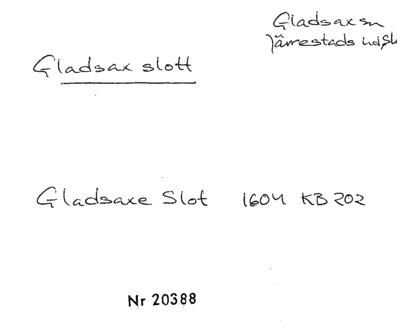 Gladsax sn
Järrestads hd, Sk
Gladsax slott
Gladsaxe Slot 1604 KB 202
Nr 20388